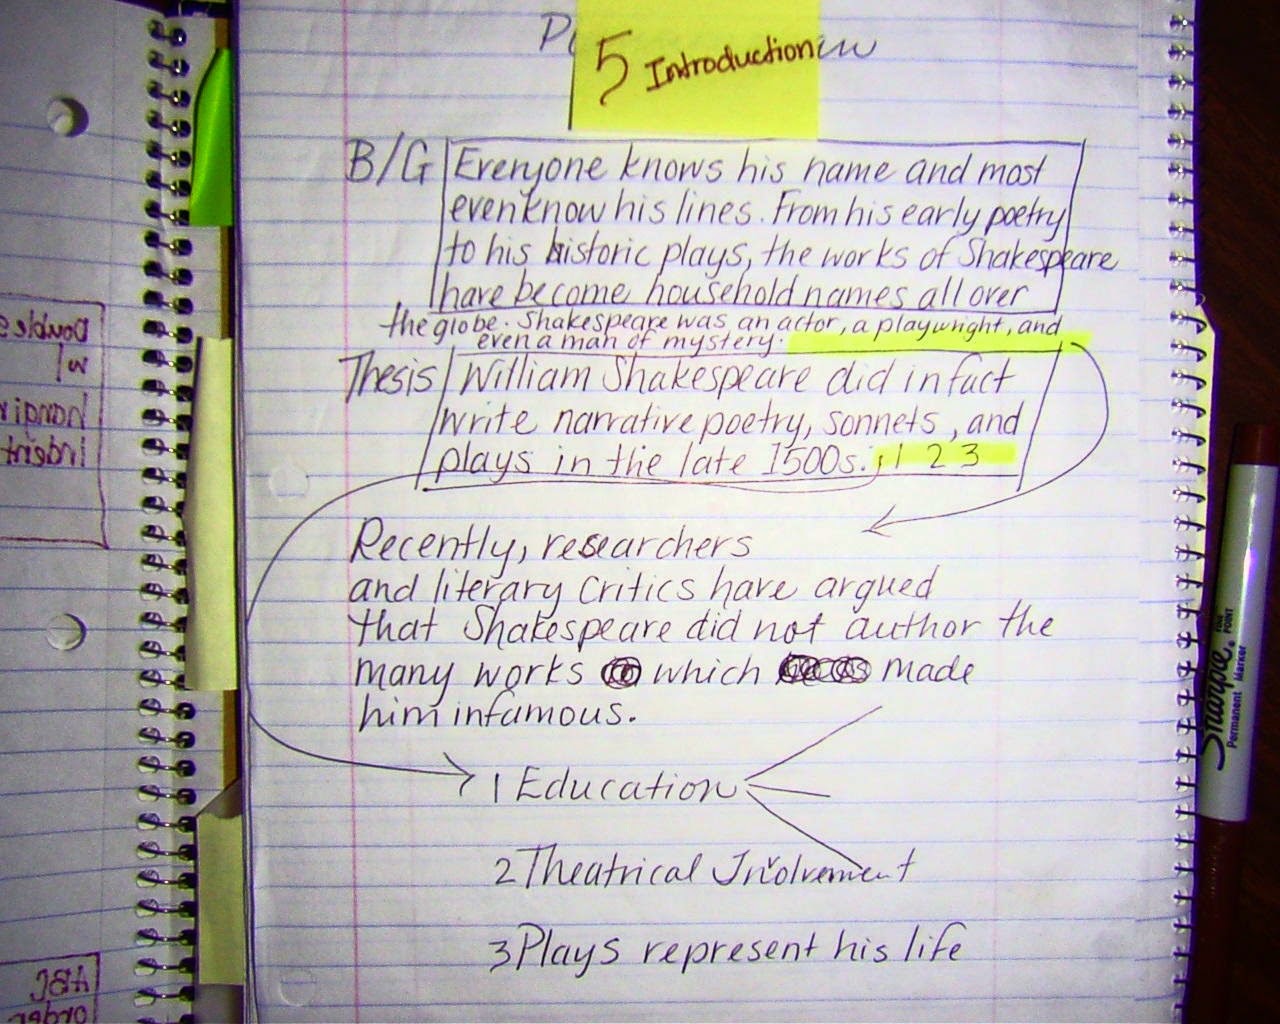 5 Introduction
B/G Everyone knows his name and most
even know his lines. From his early poetry
to his historic plays, the works of Shakespeare
have become household names all over
the globe. Shakespeare was an actor, a playwright, and
even a man of mystery.
Thesis William Shakespeare did in fact
write narrative poetry, sonnets, and
plays in the late 1500s. ; 1 2 3
Recently, researchers
and literary critics have argued
that Shakespeare did not author the
many works which made
him infamous.
1 Education
2 Theatrical Involvement
3 Plays represent his life
Doubles
w/
hangin
indent
ABC
order
Sharpie
FINE POINT
Permanent Marker